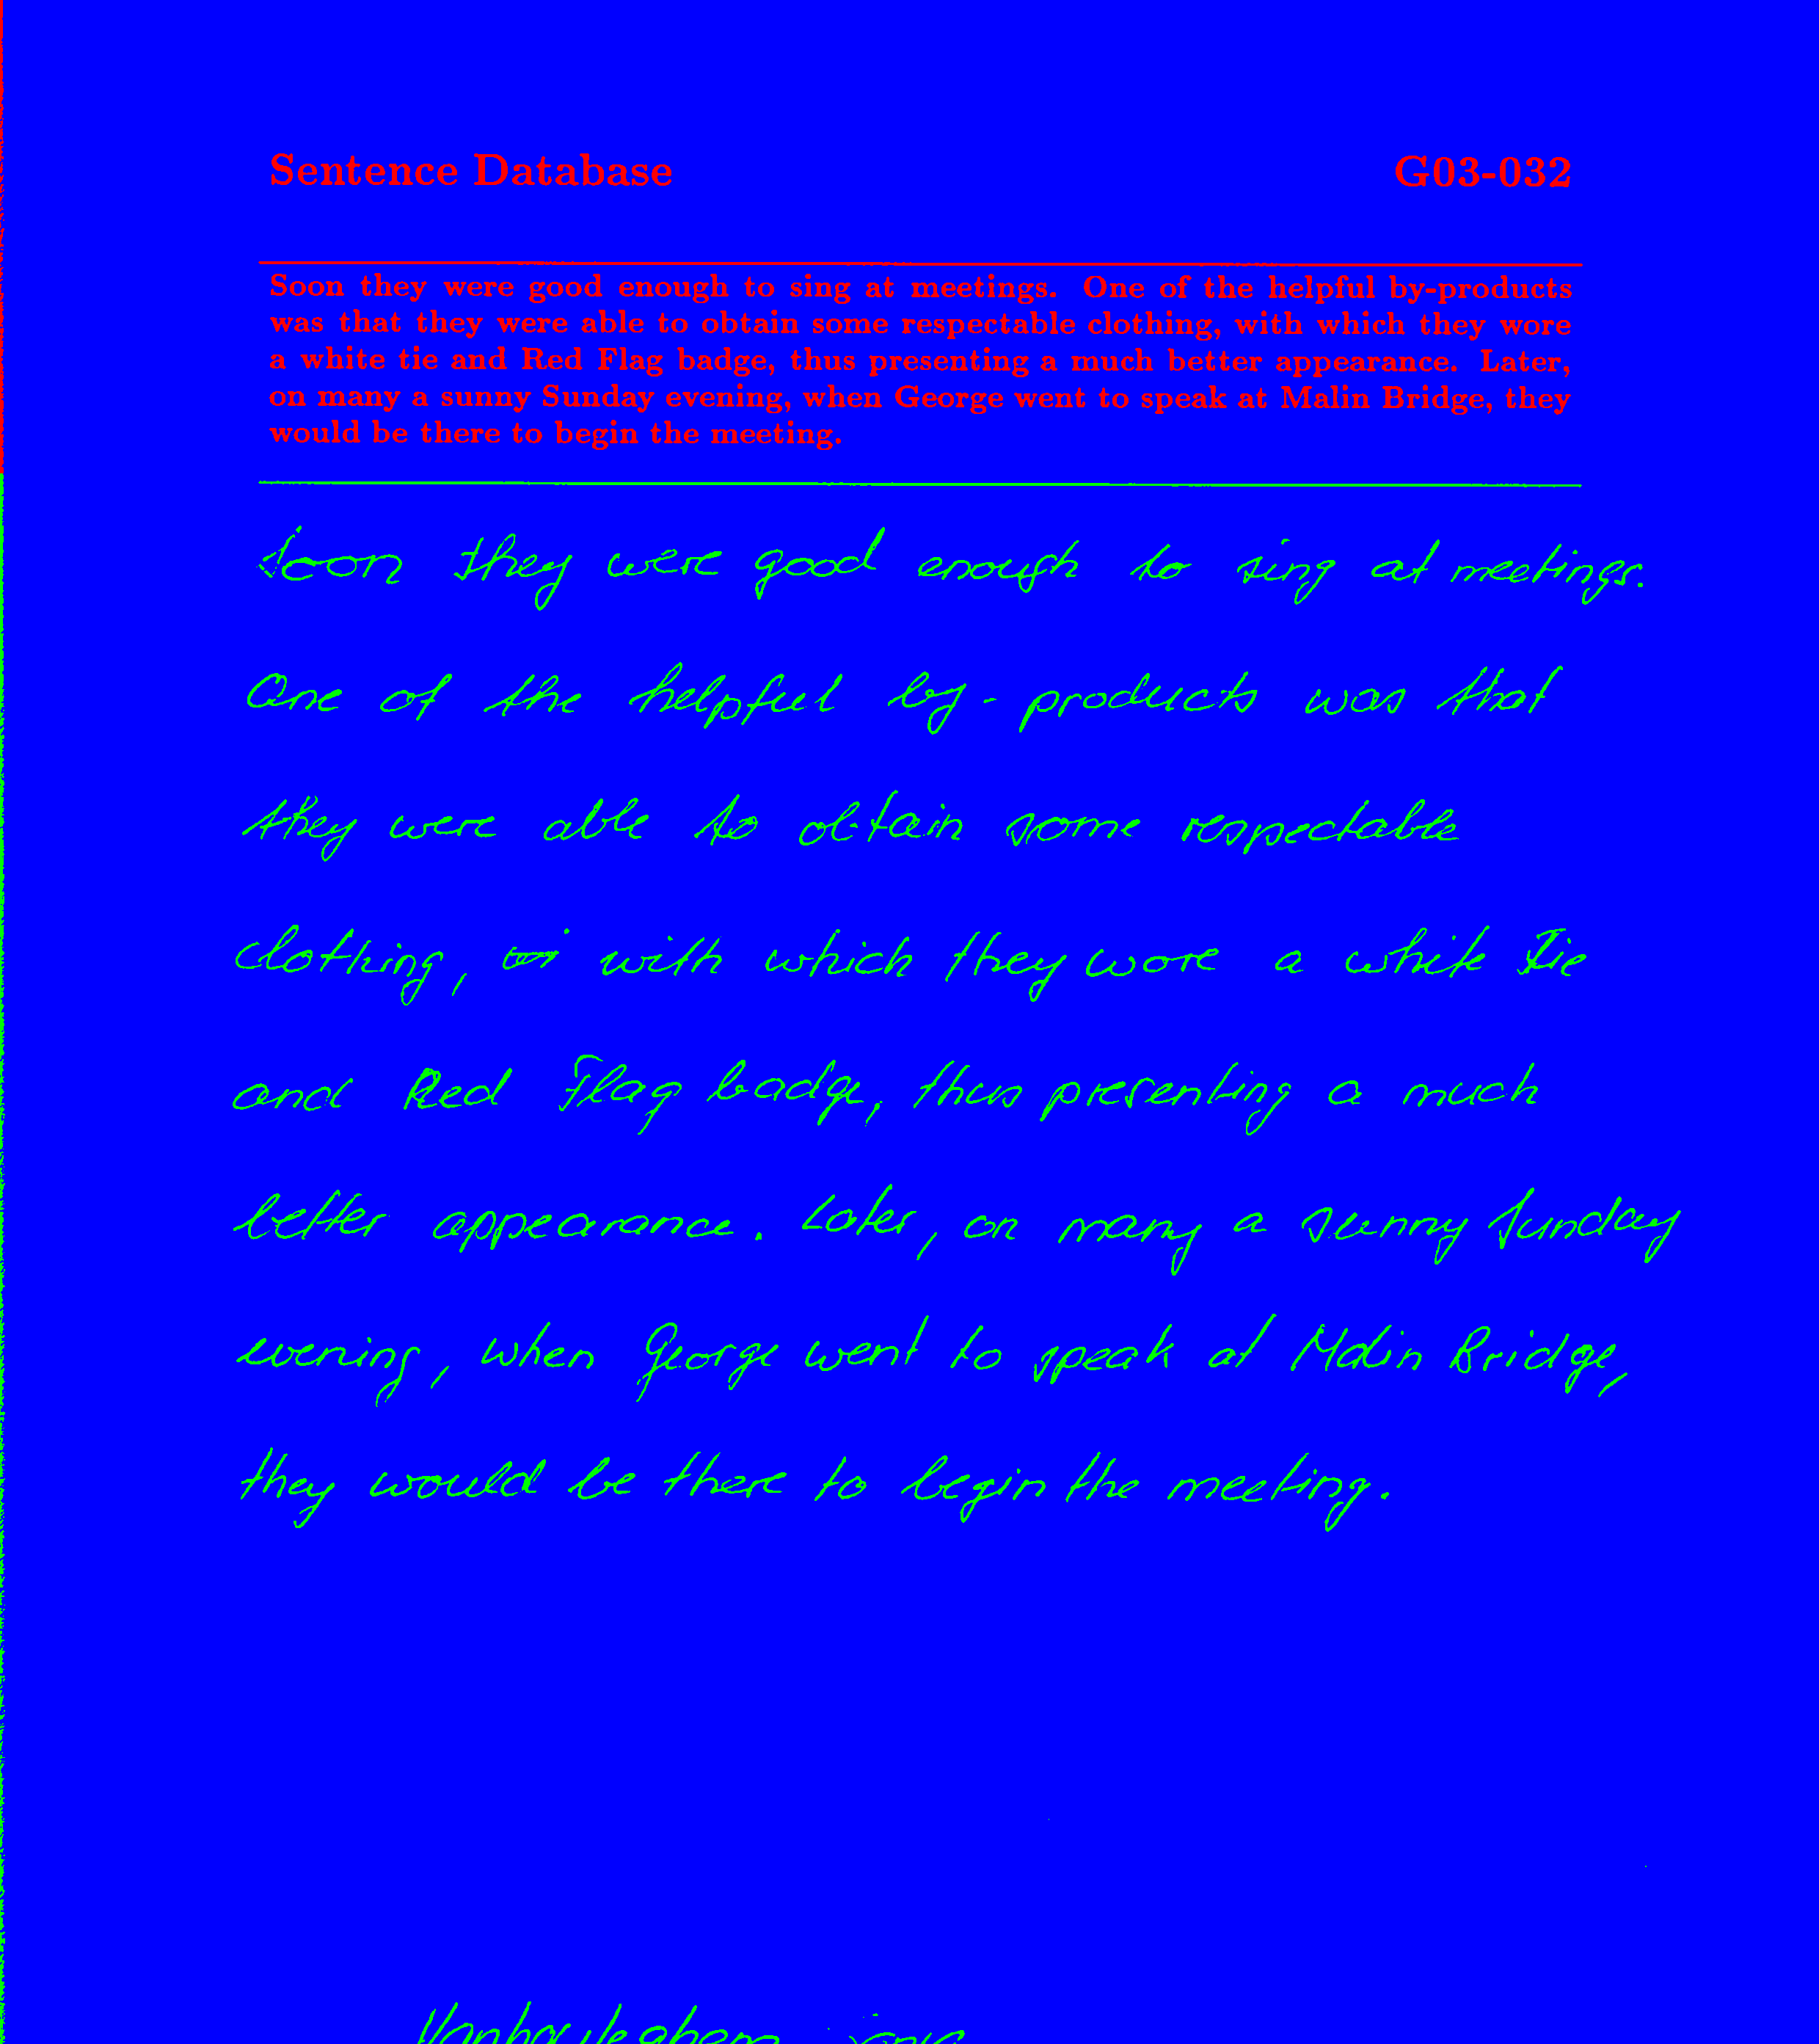 Sentence Database G03-032
Soon they were good enough to sing at meetings. One of the helpful by-products
was that they were able to obtain some respectable clothing, with which they wore
a white tie and Red Flag badge, thus presenting a much better appearance. Later,
on many a sunny Sunday evening, when George went to speak at Malin Bridge, they
would be there to begin the meeting.
Soon they were good enough to sing at meetings.
One of the helpful by-products was that
they were able to obtain some respectable
clothing, with which they wore a white Tie
and Red Flag badge, thus presenting a much
better appearance. Later, on many a sunny Sunday
evening, when George went to speak at Malin Bridge,
they would be there to begin the meeting.